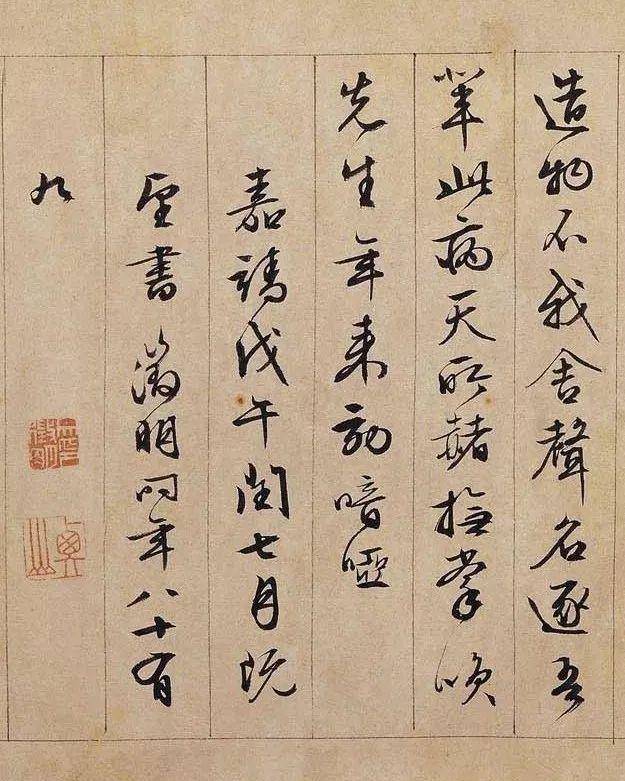 造物不我舍聲名逐吾
輩此病天所赭撫掌咲
先生年來效喑啞
嘉靖戊午閏七月既
望書徵明時年八十有
九